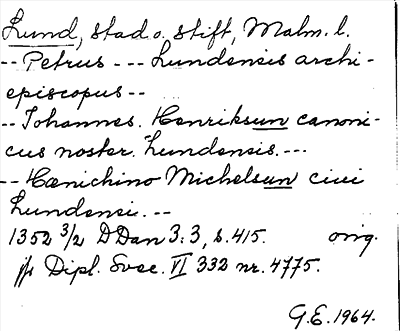 Lund, stad o. stift, Malm. l.
-- Petrus --- Lundensis archi-
episcopus --
-- Johannes. Henriksun canoni-
cus noster. Lundensis. ---
-- Hœnichino Michelsun ciui
Lundensi. --
1352 3/2 DDan 3:3, s. 415. orig.
jfr Dipl. Svec. VI 332 nr. 4775.
G.E. 1964.